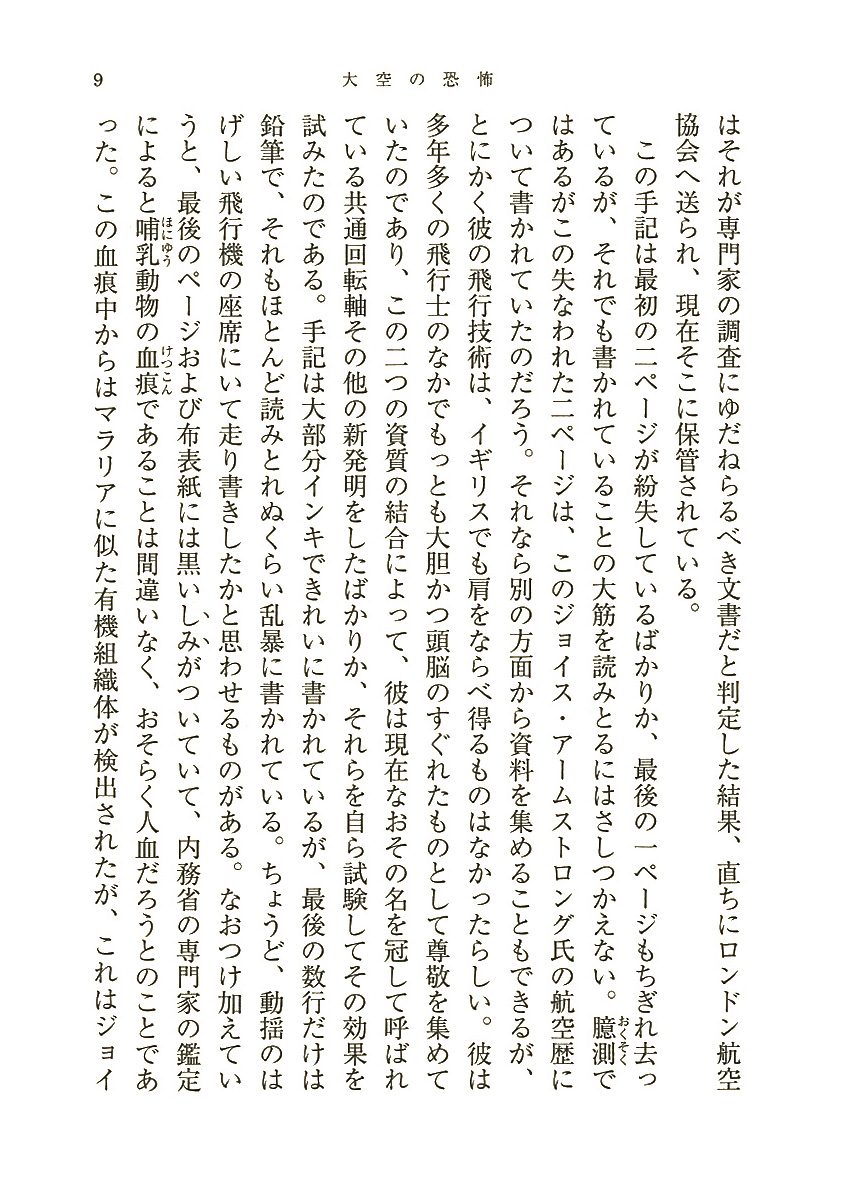 9
大空の恐怖
はそれが専門家の調査にゆだねらるべき文書だと判定した結果、直ちにロンドン航空
協会へ送られ、現在そこに保管されている。
この手記は最初の二ページが紛失しているばかりか、最後の一ページもちぎれ去っ
ているが、それでも書かれていることの大筋を読みとるにはさしつかえない。臆測で
おくそく
はあるがこの失なわれた二ページは、このジョイス・アームストロング氏の航空歴に
ついて書かれていたのだろう。それなら別の方面から資料を集めることもできるが、
とにかく彼の飛行技術は、イギリスでも肩をならべ得るものはなかったらしい。彼は
多年多くの飛行士のなかでもっとも大胆かつ頭脳のすぐれたものとして尊敬を集めて
いたのであり、この二つの資質の結合によって、彼は現在なおその名を冠して呼ばれ
ている共通回転軸その他の新発明をしたばかりか、それらを自ら試験してその効果を
試みたのである。手記は大部分インキできれいに書かれているが、最後の数行だけは
鉛筆で、それもほとんど読みとれぬくらい乱暴に書かれている。ちょうど、動揺のは
げしい飛行機の座席にいて走り書きしたかと思わせるものがある。なおつけ加えてい
うと、最後のページおよび布表紙には黒いしみがついていて、内務省の専門家の鑑定
によると哺乳動物の血痕であることは間違いなく、おそらく人血だろうとのことであ
ほにゆう
けつこん
った。この血痕中からはマラリアに似た有機組織体が検出されたが、これはジョイ